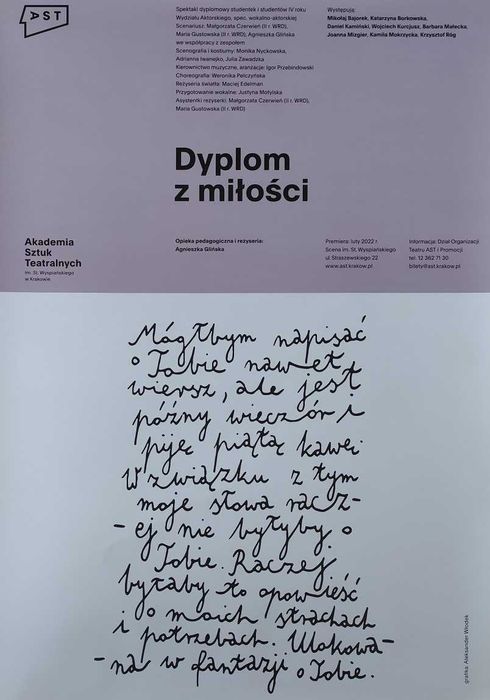 AST
Spektakl dyplomowy studentek i studentów IV roku
Wydziału Aktorskiego, spec. wokalno-aktorskiej
Scenariusz: Małgorzata Czerwień (II r. WRD),
Maria Gustowska (II r. WRD), Agnieszka Glińska
we współpracy z zespołem
Scenografia i kostiumy: Monika Nyckowska,
Adrianna Iwanejko, Julia Zawadzka
Kierownictwo muzyczne, aranżacje: Igor Przebindowski
Choreografia: Weronika Pelczyńska
Reżyseria światła: Maciej Edelman
Przygotowanie wokalne: Justyna Motylska
Asystentki reżyserki: Małgorzata Czerwień (II r. WRD),
Maria Gustowska (II r. WRD)
Występują:
Mikołaj Bajorek, Katarzyna Borkowska,
Daniel Kamiński, Wojciech Kurcjusz, Barbara Małecka,
Joanna Mizgier, Kamila Mokrzycka, Krzysztof Róg
Dyplom
z miłości
Akademia
Sztuk
Teatralnych
im. St. Wyspiańskiego
w Krakowie
Opieka pedagogiczna i reżyseria:
Agnieszka Glińska
Premiera: luty 2022 r.
Scena im. St. Wyspiańskiego
ul. Straszewskiego 22
www.ast.krakow.pl
Informacja: Dział Organizacji
Teatru AST i Promocji
tel: 12 362 71 30
bilety@ast.krakow.pl
Mógłbym napisać
o Tobie nawet
wiersz, ale jest
późny wieczór i
piję piątą kawę.
W związku z tym
moje słowa racz-
-ej nie byłyby o
Tobie. Raczej
byłaby to opowieść
o moich strachach
i potrzebach. Ulokowa-
-na w fantazji o Tobie.
grafika: Aleksander Włodek